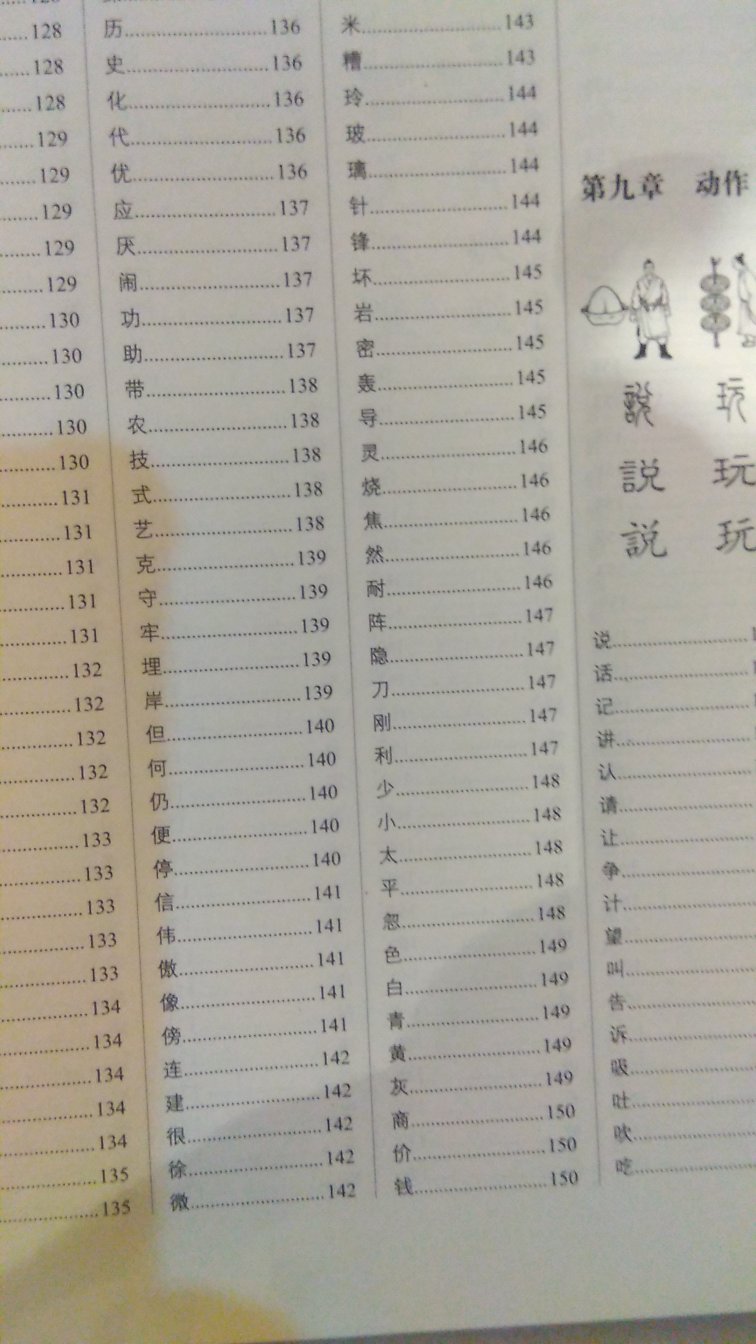 128
128
128
129
129
129
129
129
130
130
130
130
130
131
131
131
131
131
132
132
132
132
132
133
133
133
133
133
134
134
134
134
134
135
135
历 136
史 136
化 136
代 136
优 136
应 137
厌 137
闹 137
功 137
助 137
带 138
农 138
技 138
式 138
艺 138
克 139
守 139
牢 139
埋 139
岸 139
但 140
何 140
仍 140
便 140
停 140
信 141
伟 141
傲 141
像 141
傍 141
连 142
建 142
很 142
徐 142
微 142
米 143
糟 143
玲 144
玻 144
璃 144
针 144
锋 144
坏 145
岩 145
密 145
轰 145
导 145
灵 146
烧 146
焦 146
然 146
耐 146
阵 147
隐 147
刀 147
刚 147
利 147
少 148
小 148
太 148
平 148
忽 148
色 149
白 149
青 149
黄 149
灰 149
商 150
价 150
钱 150
第九章 动作
說 玩
説 玩
説 玩
说
话
记
讲
认
请
让
争
计
望
叫
告
诉
吸
吐
吹
吃